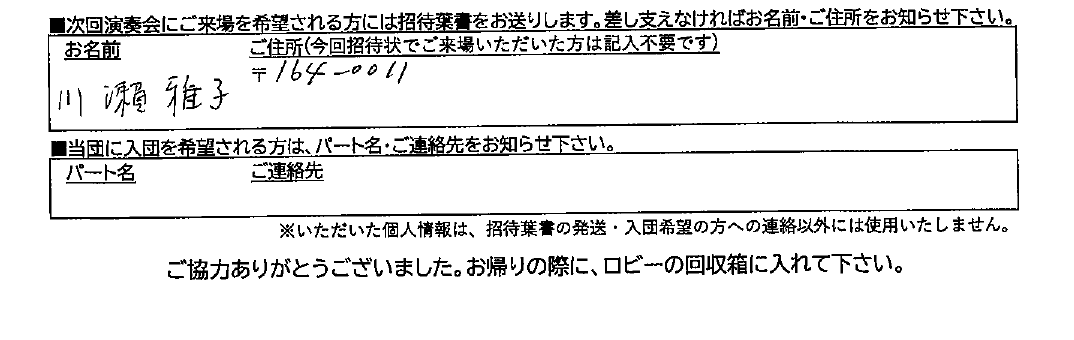 ■次回演奏会にご来場を希望される方には招待葉書をお送りします。差し支えなければお名前・ご住所をお知らせ下さい。
お名前 ご住所(今回招待状でご来場いただいた方は記入不要です)
〒164-0011
川瀬雅子
■当団に入団を希望される方は、パート名・ご連絡先をお知らせ下さい。
パート名 ご連絡先
※いただいた個人情報は、招待葉書の発送・入団希望の方への連絡以外には使用いたしません。
ご協力ありがとうございました。お帰りの際に、ロビーの回収箱に入れて下さい。